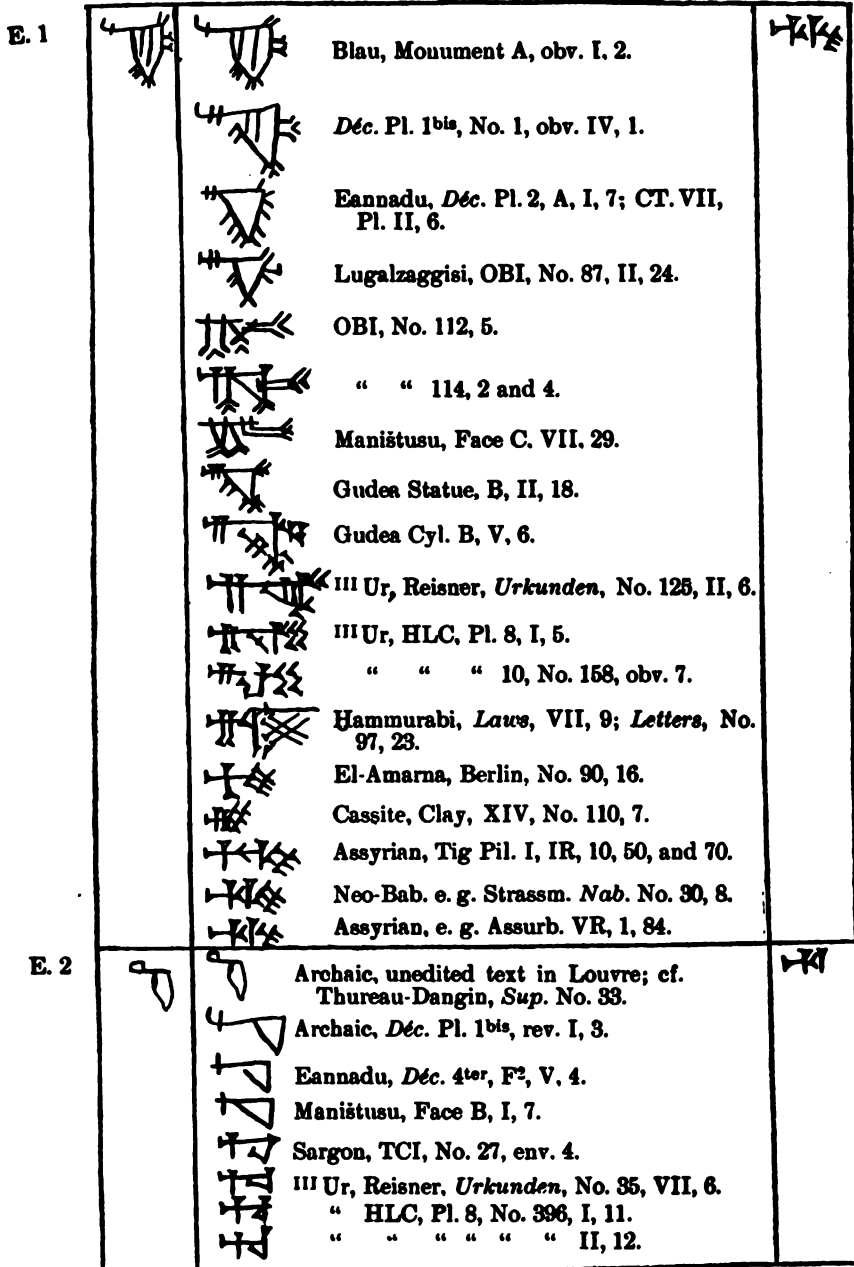 E. 1
Blau, Monument A, obv. I, 2.
Déc. Pl. 1bis, No. 1, obv. IV, 1.
Eannadu, Déc. Pl. 2, A, I, 7; CT. VII,
Pl. II, 6.
Lugalzaggisi, OBI, No. 87, II, 24.
OBI, No. 112, 5.
“ “ 114, 2 and 4.
Maništusu, Face C. VII. 29.
Gudea Statue, B, II, 18.
Gudea Cyl. B, V, 6.
III Ur, Reisner, Urkunden, No. 125, II, 6.
III Ur, HLC, Pl. 8, I, 5.
“ “ “ 10, No. 158, obv. 7.
Ḫammurabi, Laws, VII, 9; Letters, No.
97, 23.
El-Amarna, Berlin, No. 90, 16.
Cassite, Clay, XIV, No. 110, 7.
Assyrian, Tig Pil. I, IR, 10, 50, and 70.
Neo-Bab. e. g. Strassm. Nab. No. 30, 8.
Assyrian, e. g. Assurb. VR, 1, 84.
E. 2
Archaic, unedited text in Louvre; cf.
Thureau-Dangin, Sup. No. 33.
Archaic, Déc. Pl. 1bis, rev. I, 3.
Eannadu, Déc. 4ter, F2, V, 4.
Maništusu, Face B, I, 7.
Sargon, TCI, No. 27, env. 4.
III Ur, Reisner, Urkunden, No. 35, VII, 6.
“ HLC, Pl. 8, No. 396, I, 11.
“ “ “ “ “ “ II, 12.